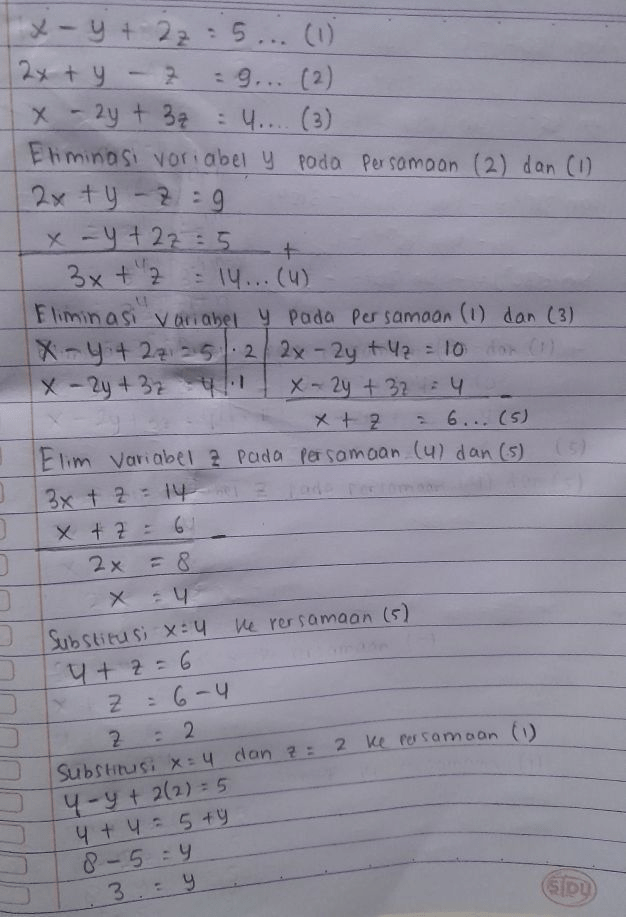 x - y + 2z = 5 ... (1)
2x + y - z = 9... (2)
x - 2y + 3z = 4.... (3)
Eliminasi variabel y pada persamaan (2) dan (1)
2x + y - z = 9
x - y + 2z = 5 +
3x + z = 14... (4)
Eliminasi variabel y pada persamaan (1) dan (3)
x - y + 2z = 5 | . 2 | 2x - 2y + 4z = 10
x - 2y + 3z = 4 | . 1 | x - 2y + 3z = 4 -
x + z = 6... (5)
Elim variabel z pada persamaan (4) dan (5)
3x + z = 14
x + z = 6 -
2x = 8
x = 4
Substitusi x = 4 ke persamaan (5)
4 + z = 6
z = 6 - 4
z = 2
Substitusi x = 4 dan z = 2 ke persamaan (1)
4 - y + 2(2) = 5
4 + 4 = 5 + y
8 - 5 = y
3 = y
SIDU